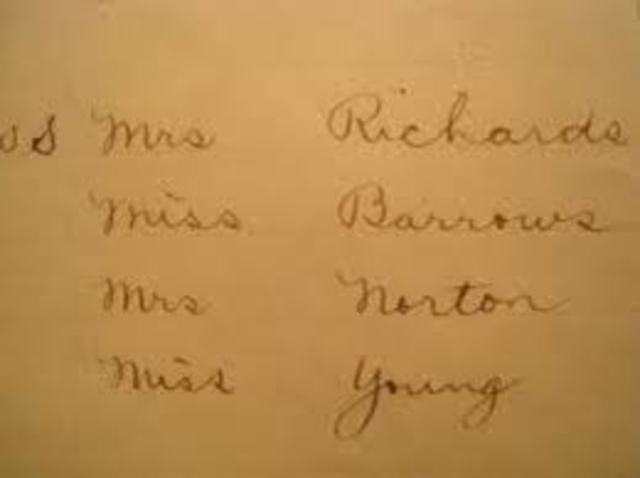 Mrs Richards
Miss Barrows
Mrs Norton
Miss Young